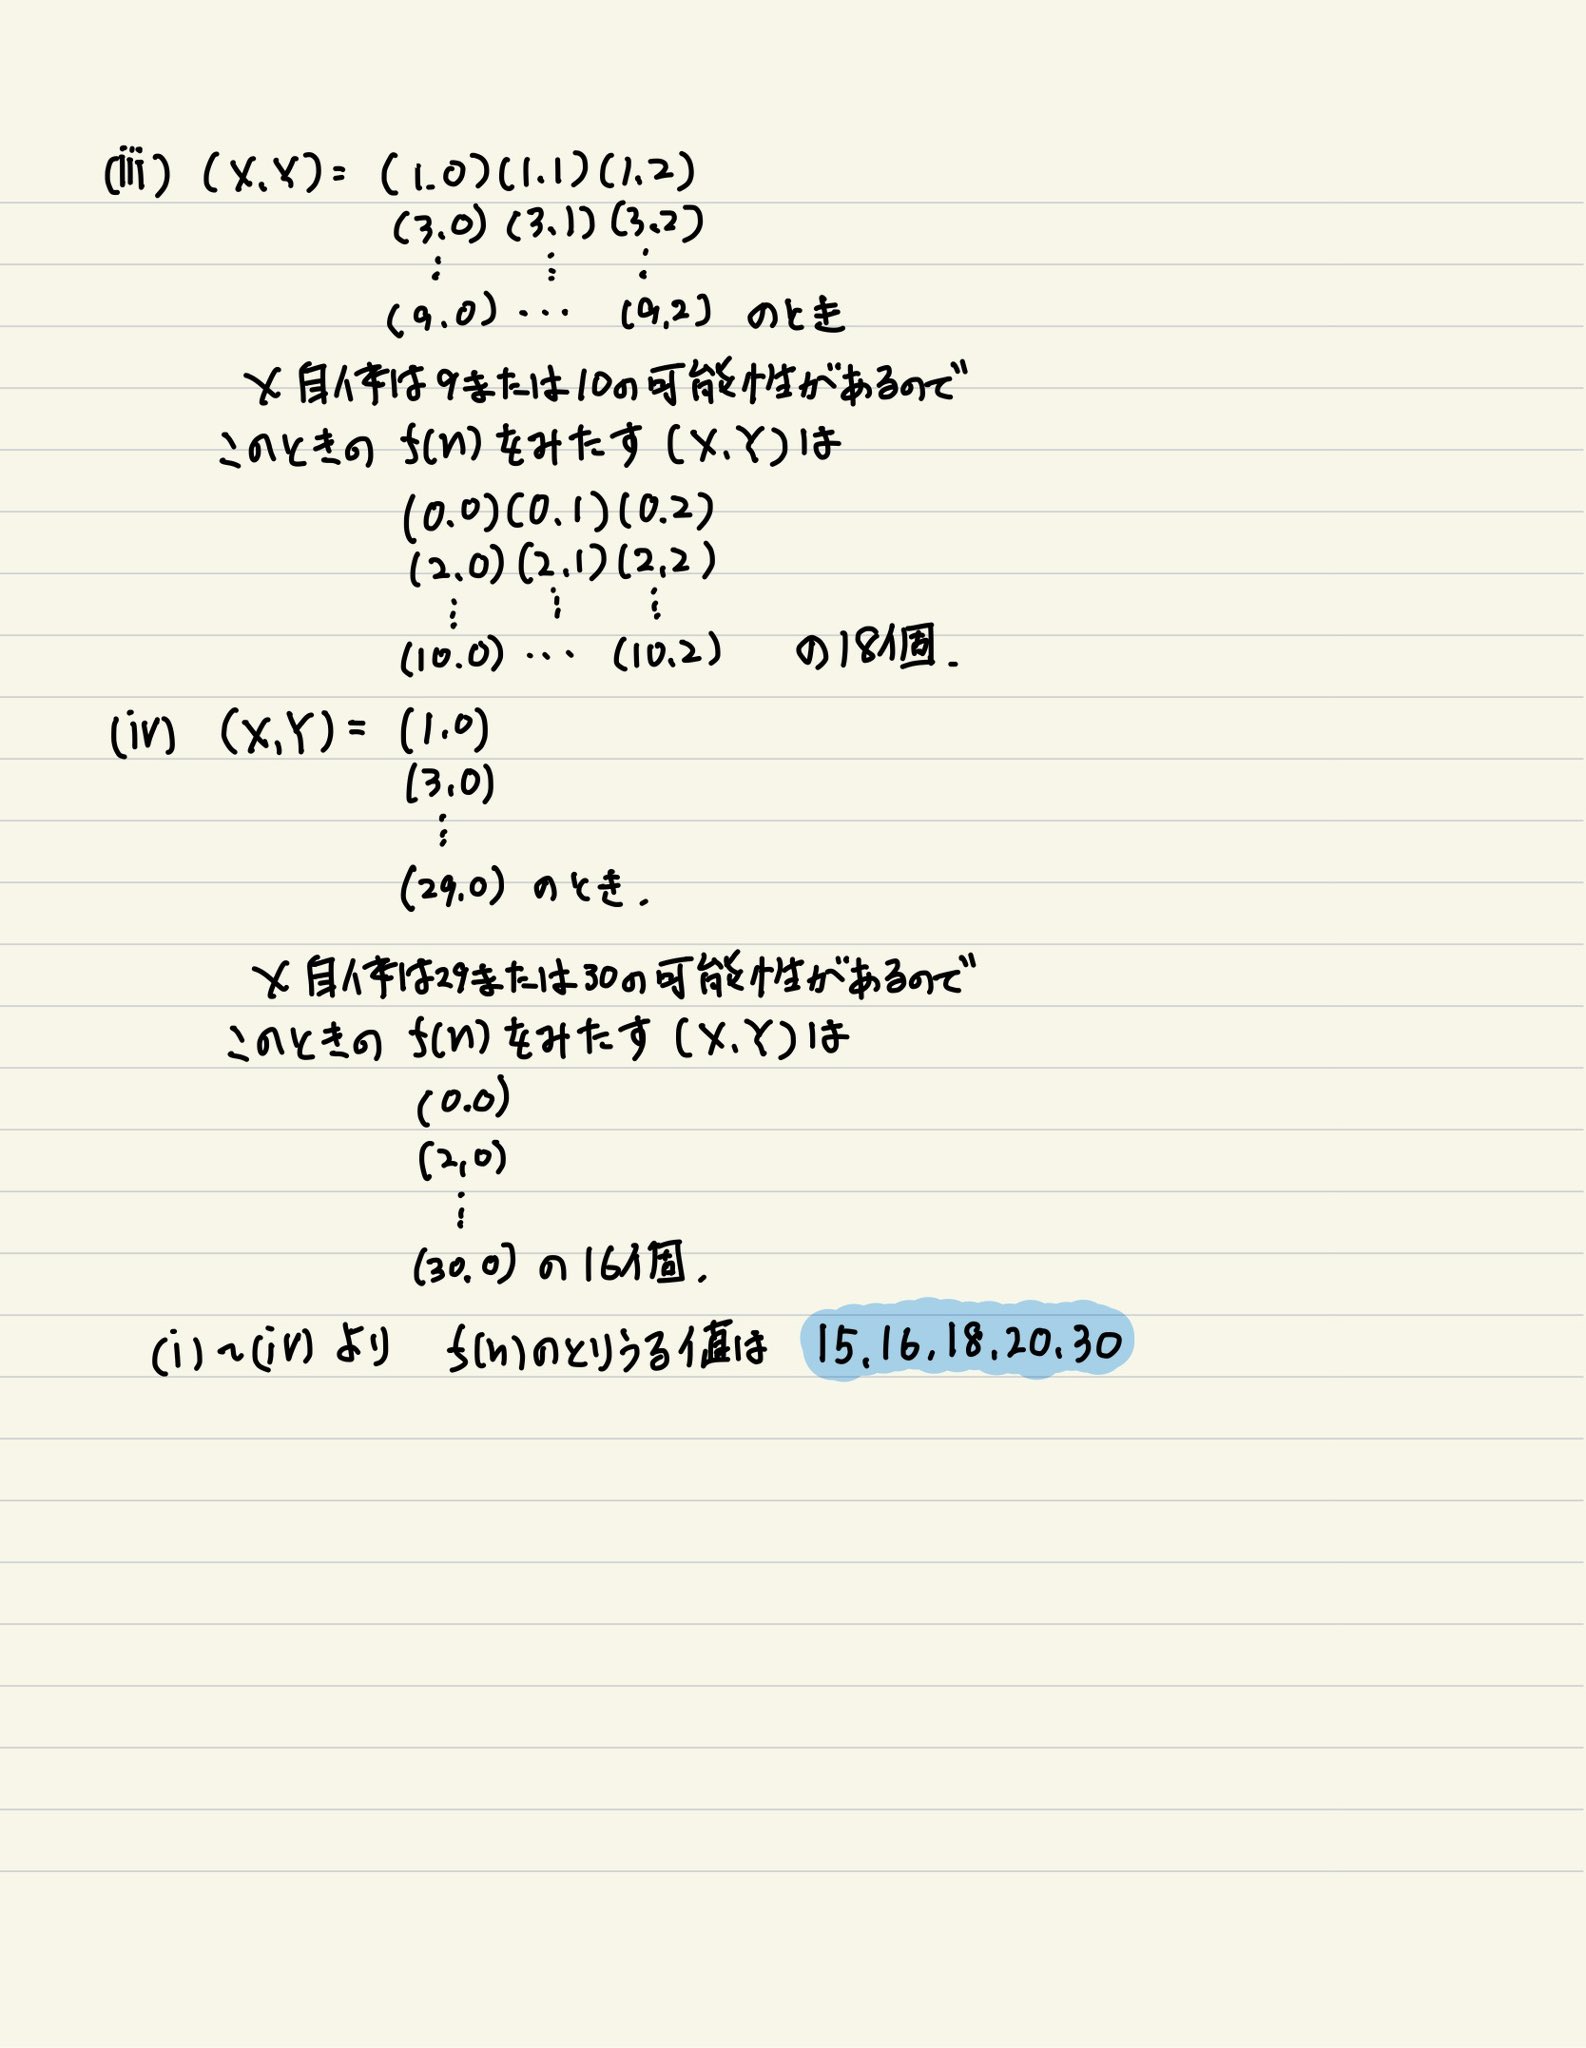 (iii) (X.Y)= (1.0)(1.1)(1.2)
(3.0) (3.1) (3.2)
⋮ ⋮ ⋮
(9.0) ... (9,2) のとき
X自体は9または10の可能性があるので
このときの f(n) をみたす (X.Y)は
(0.0)(0.1)(0.2)
(2.0)(2.1)(2,2)
⋮ ⋮ ⋮
(10.0) ... (10.2) の18個.
(iv) (X,Y)= (1.0)
(3.0)
⋮
(29.0) のとき.
X自体は29または30の可能性があるので
このときの f(n) をみたす (X.Y)は
(0.0)
(2,0)
⋮
(30.0) の16個.
(i)~(iv) より f(n)のとりうる値は 15.16.18.20.30